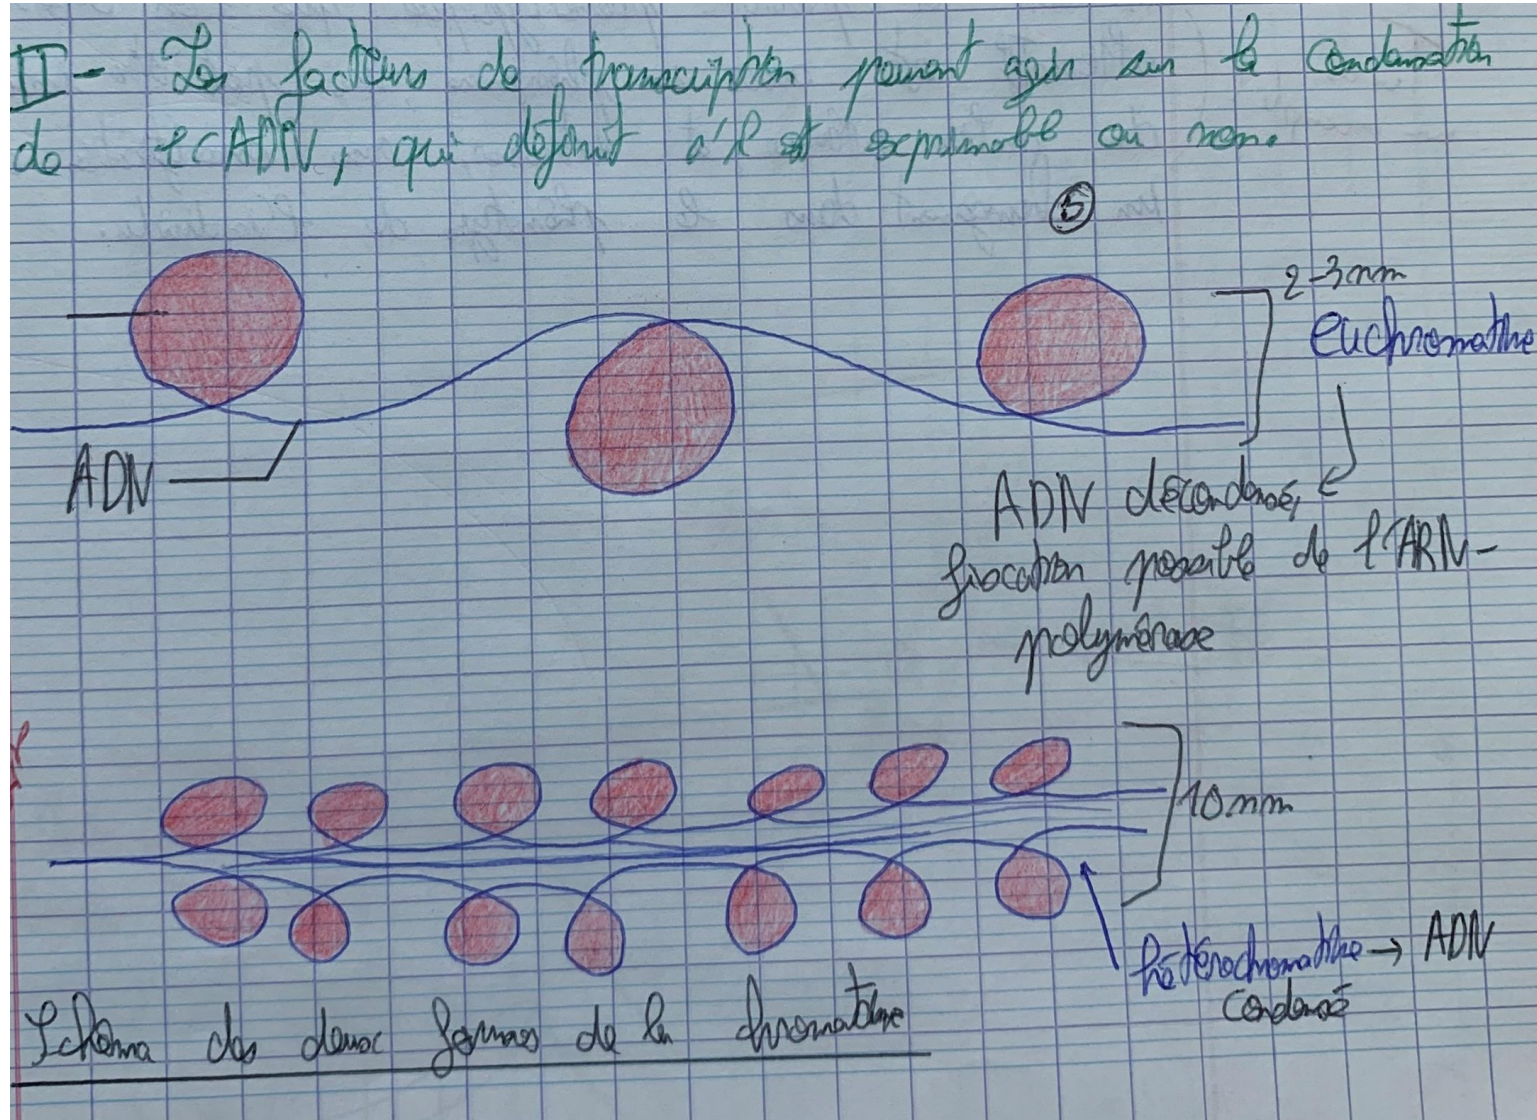 II - Les facteurs de transcription peuvent agir sur la condensation
de l'ADN, qui définit s'il est exprimable ou non.
5
2-3nm
euchromatine
ADN
ADN décondensé,
fixation possible de l'ARN-
polymérase
10nm
hétérochromatine → ADN
condensé
Schéma des deux formes de la chromatine